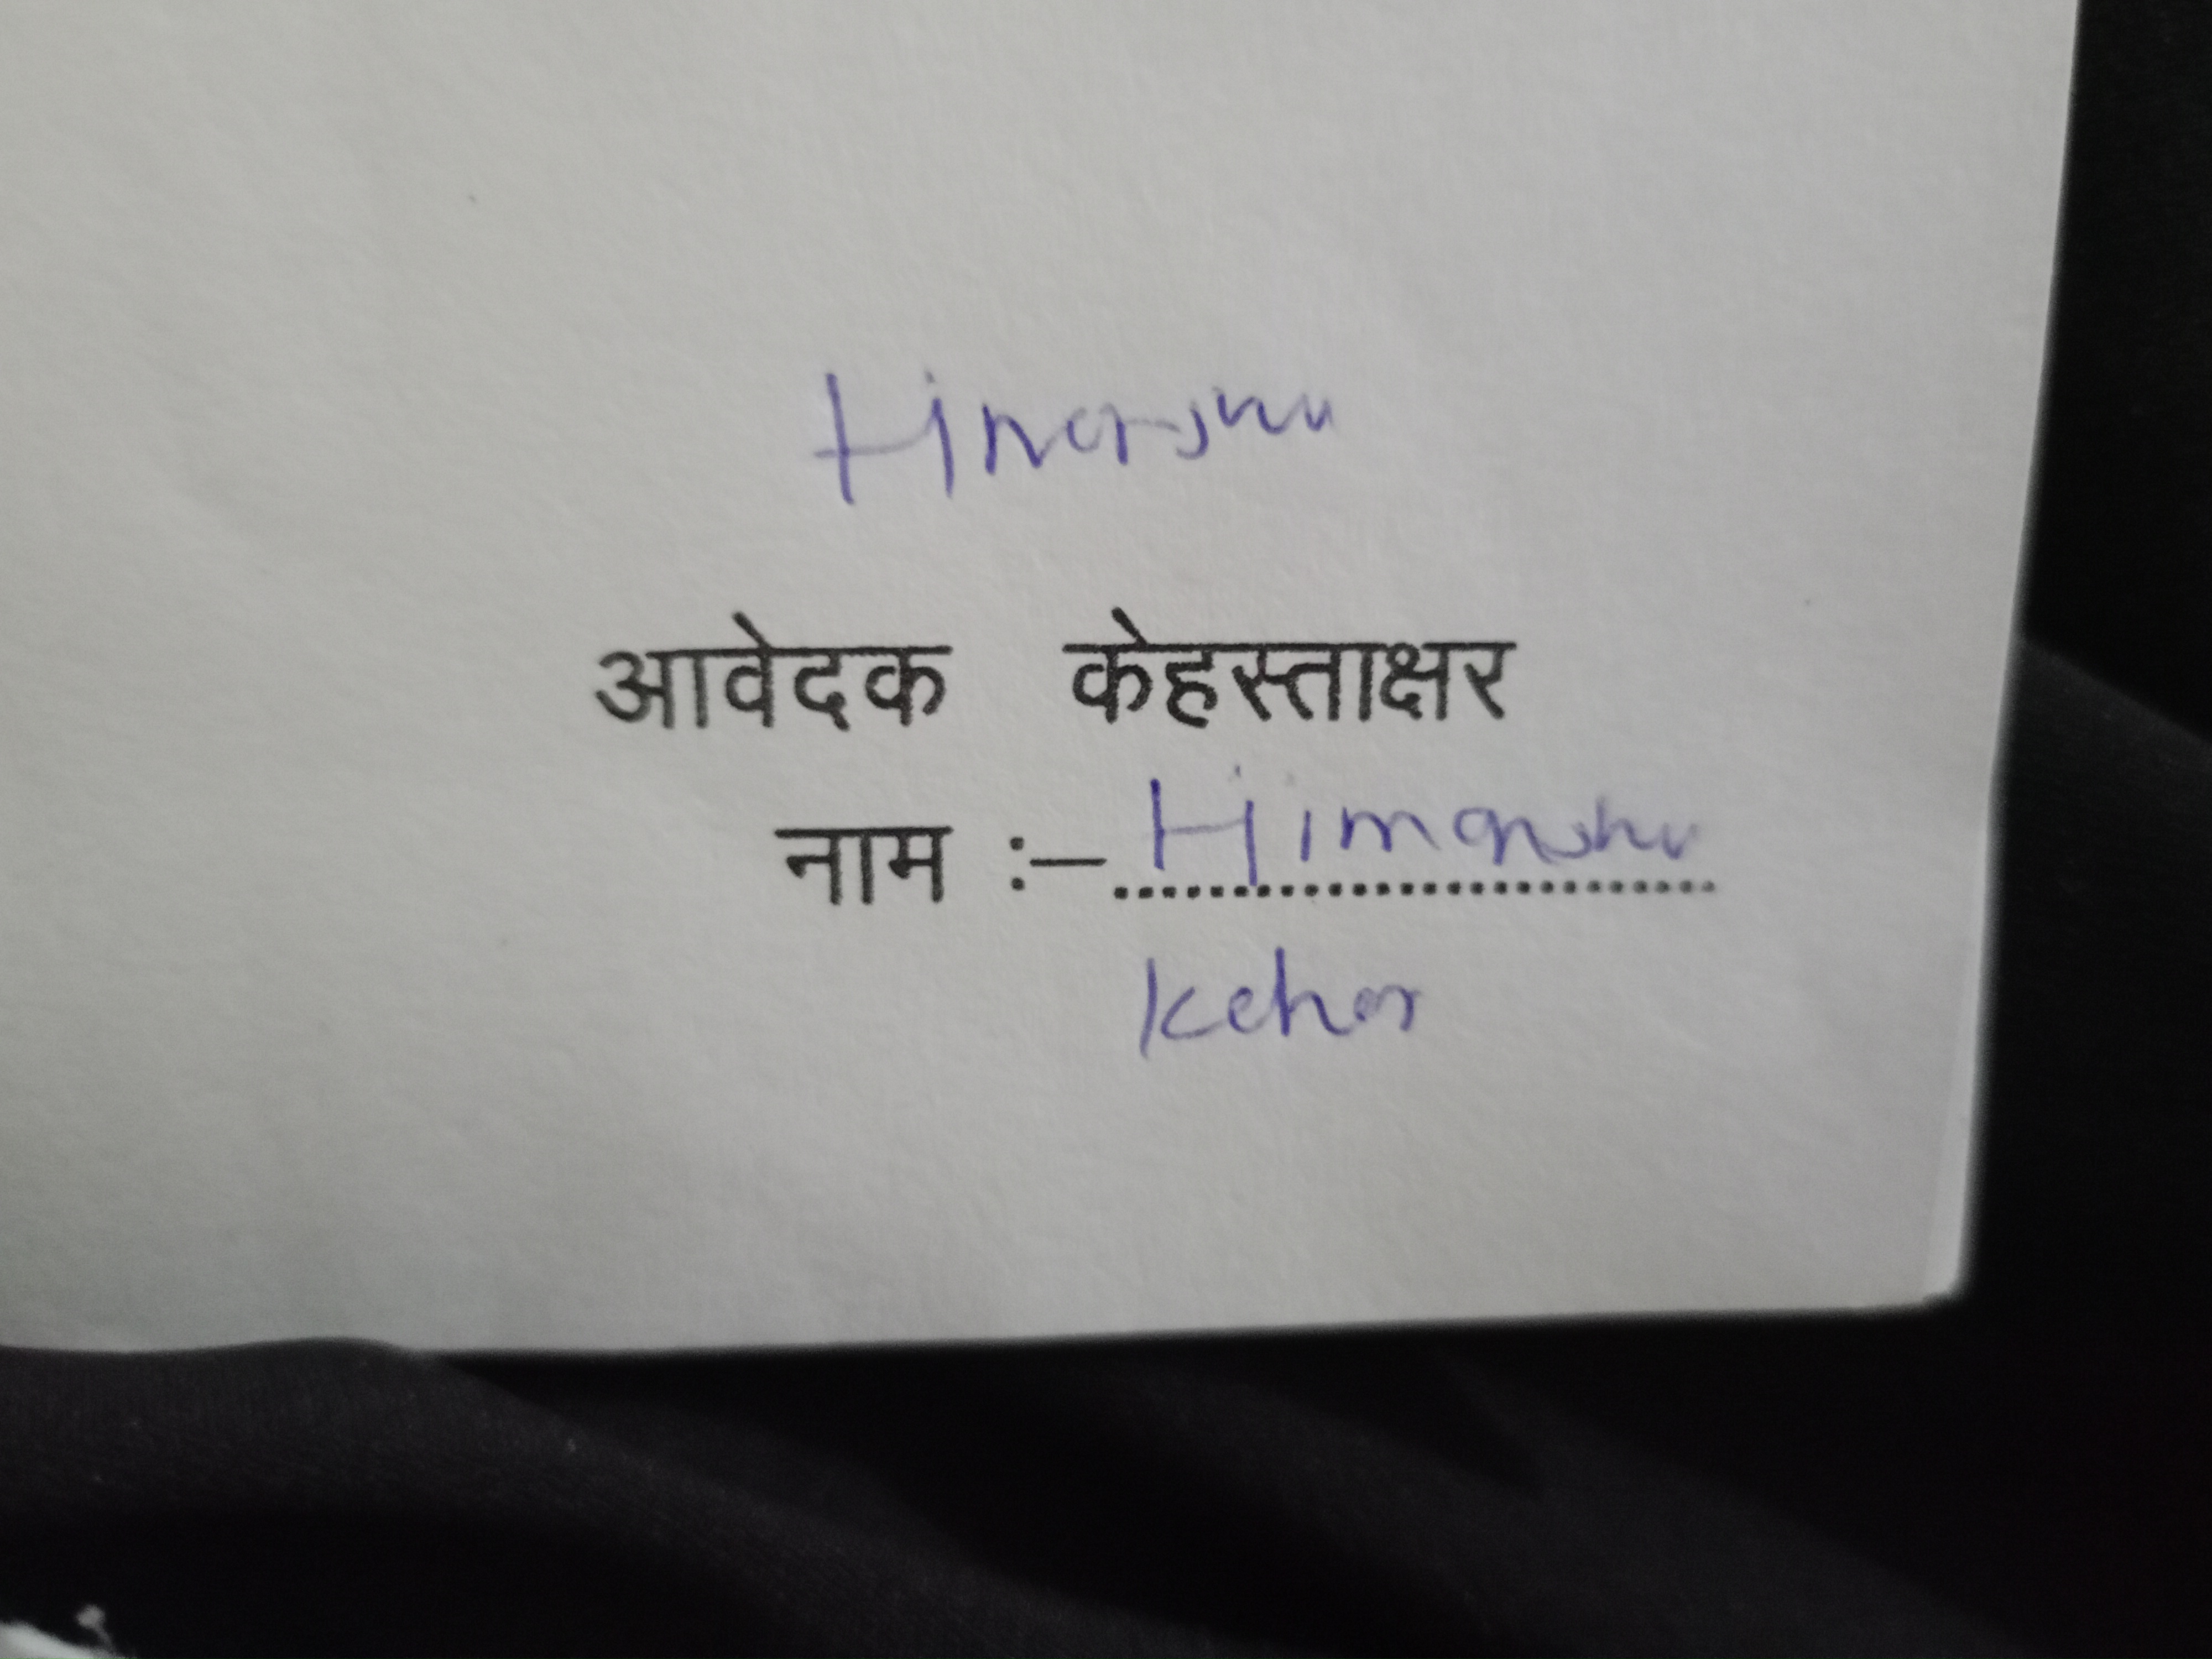 Himanshu
आवेदक केहस्ताक्षर
नाम :-.......................... Himanshu
Keher